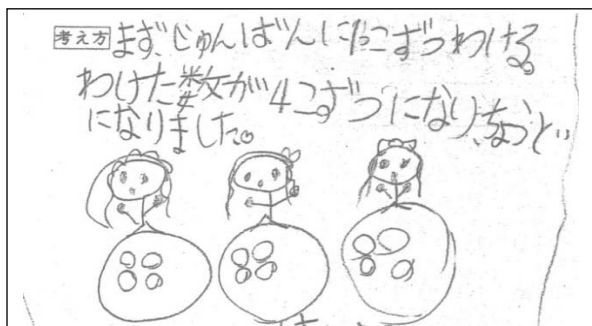 考え方 まず、じゅんばんに1こずつわける。
わけた数が4こずつになり、ちょうど
になりました。